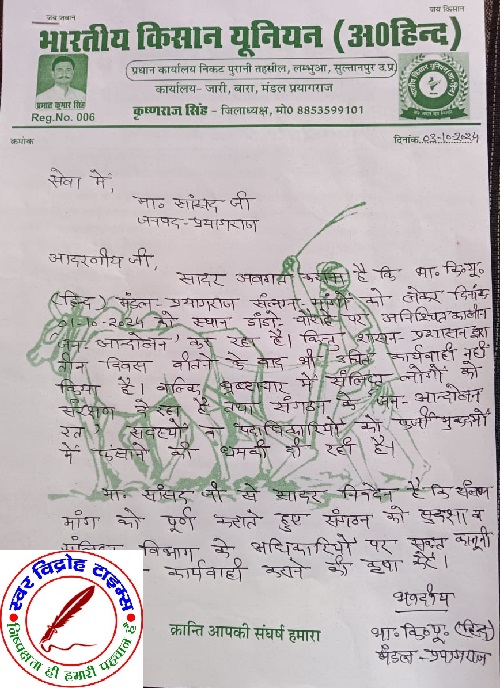 जय जवान
जय किसान
भारतीय किसान यूनियन (अ0हिन्द)
प्रधान कार्यालय निकट पुरानी तहसील, लम्भुआ, सुल्तानपुर उ.प्र.
कार्यालय- जारी, बारा, मंडल प्रयागराज
प्रभात कुमार सिंह
कृष्णराज सिंह - जिलाध्यक्ष, मो0 8853599101
Reg.No. 006
क्रमांक
दिनांक 03-10-2024
सेवा में,
मा० सांसद जी
जनपद-प्रयागराज
आदरणीय जी,
सादर अवगत कराना है कि भा० कि०यू०
(हिन्द) मंडल-प्रयागराज संलग्न मांगों को लेकर दिनांक
01-10-2024 को स्थान डांडो चौराहे पर अनिश्चित कालीन
जन-आन्दोलन कर रहा है। किन्तु शासन-प्रशासन द्वारा
तीन दिवस बीतने के बाद भी उचित कार्यवाही नहीं
किया है। बल्कि भ्रष्टाचार में संलिप्त लोगों को
संरक्षण दे रहा है तथा संगठन के जन-आन्दोलन
रत सदस्यों व पदाधिकारियों को फर्जी मुकदमों
में फंसाने की धमकी दी रही है।
मा० सांसद जी से सादर निवेदन है कि संलग्न
मांग को पूर्ण कराते हुए संगठन को सुरक्षा व
विभाग के अधिकारियों पर सख्त कानूनी
कार्यवाही कराने की कृपा करें।
भवदीय
क्रान्ति आपकी संघर्ष हमारा
भा० कि०यू० (हिन्द)
मंडल-प्रयागराज
स्वर विद्रोह टाइम्स
निष्पक्षता ही हमारी पहचान है